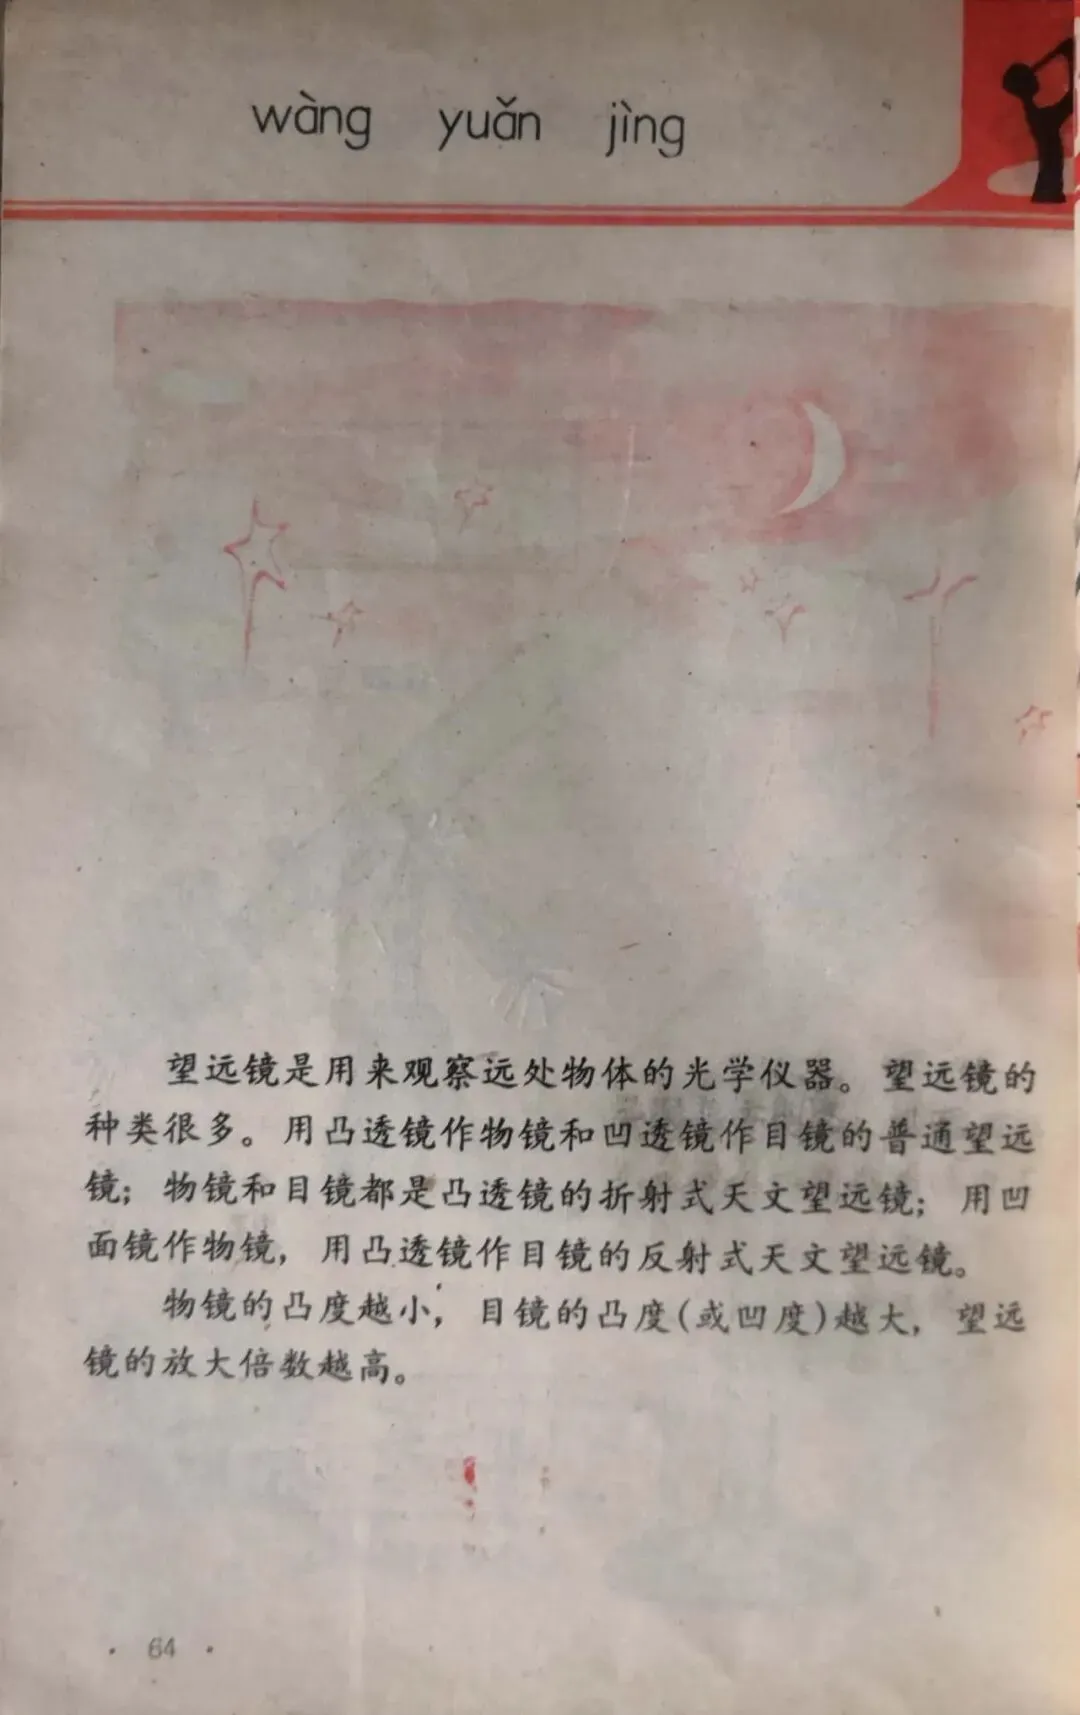 wàng yuǎn jìng
望远镜是用来观察远处物体的光学仪器。望远镜的
种类很多。用凸透镜作物镜和凹透镜作目镜的普通望远
镜；物镜和目镜都是凸透镜的折射式天文望远镜；用凹
面镜作物镜，用凸透镜作目镜的反射式天文望远镜。
物镜的凸度越小，目镜的凸度(或凹度)越大，望远
镜的放大倍数越高。
· 64 ·